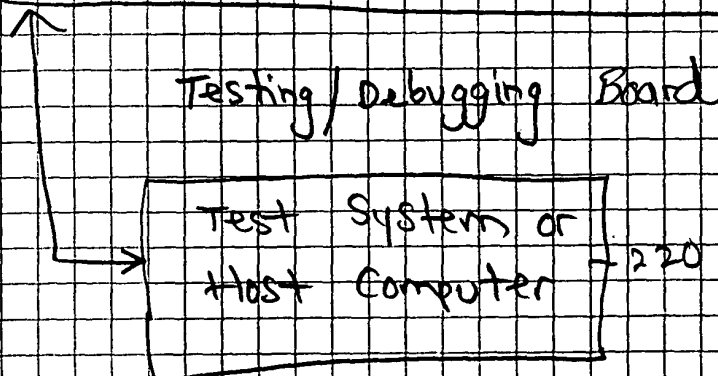 Testing/Debugging Board
Test System or
Host Computer
220